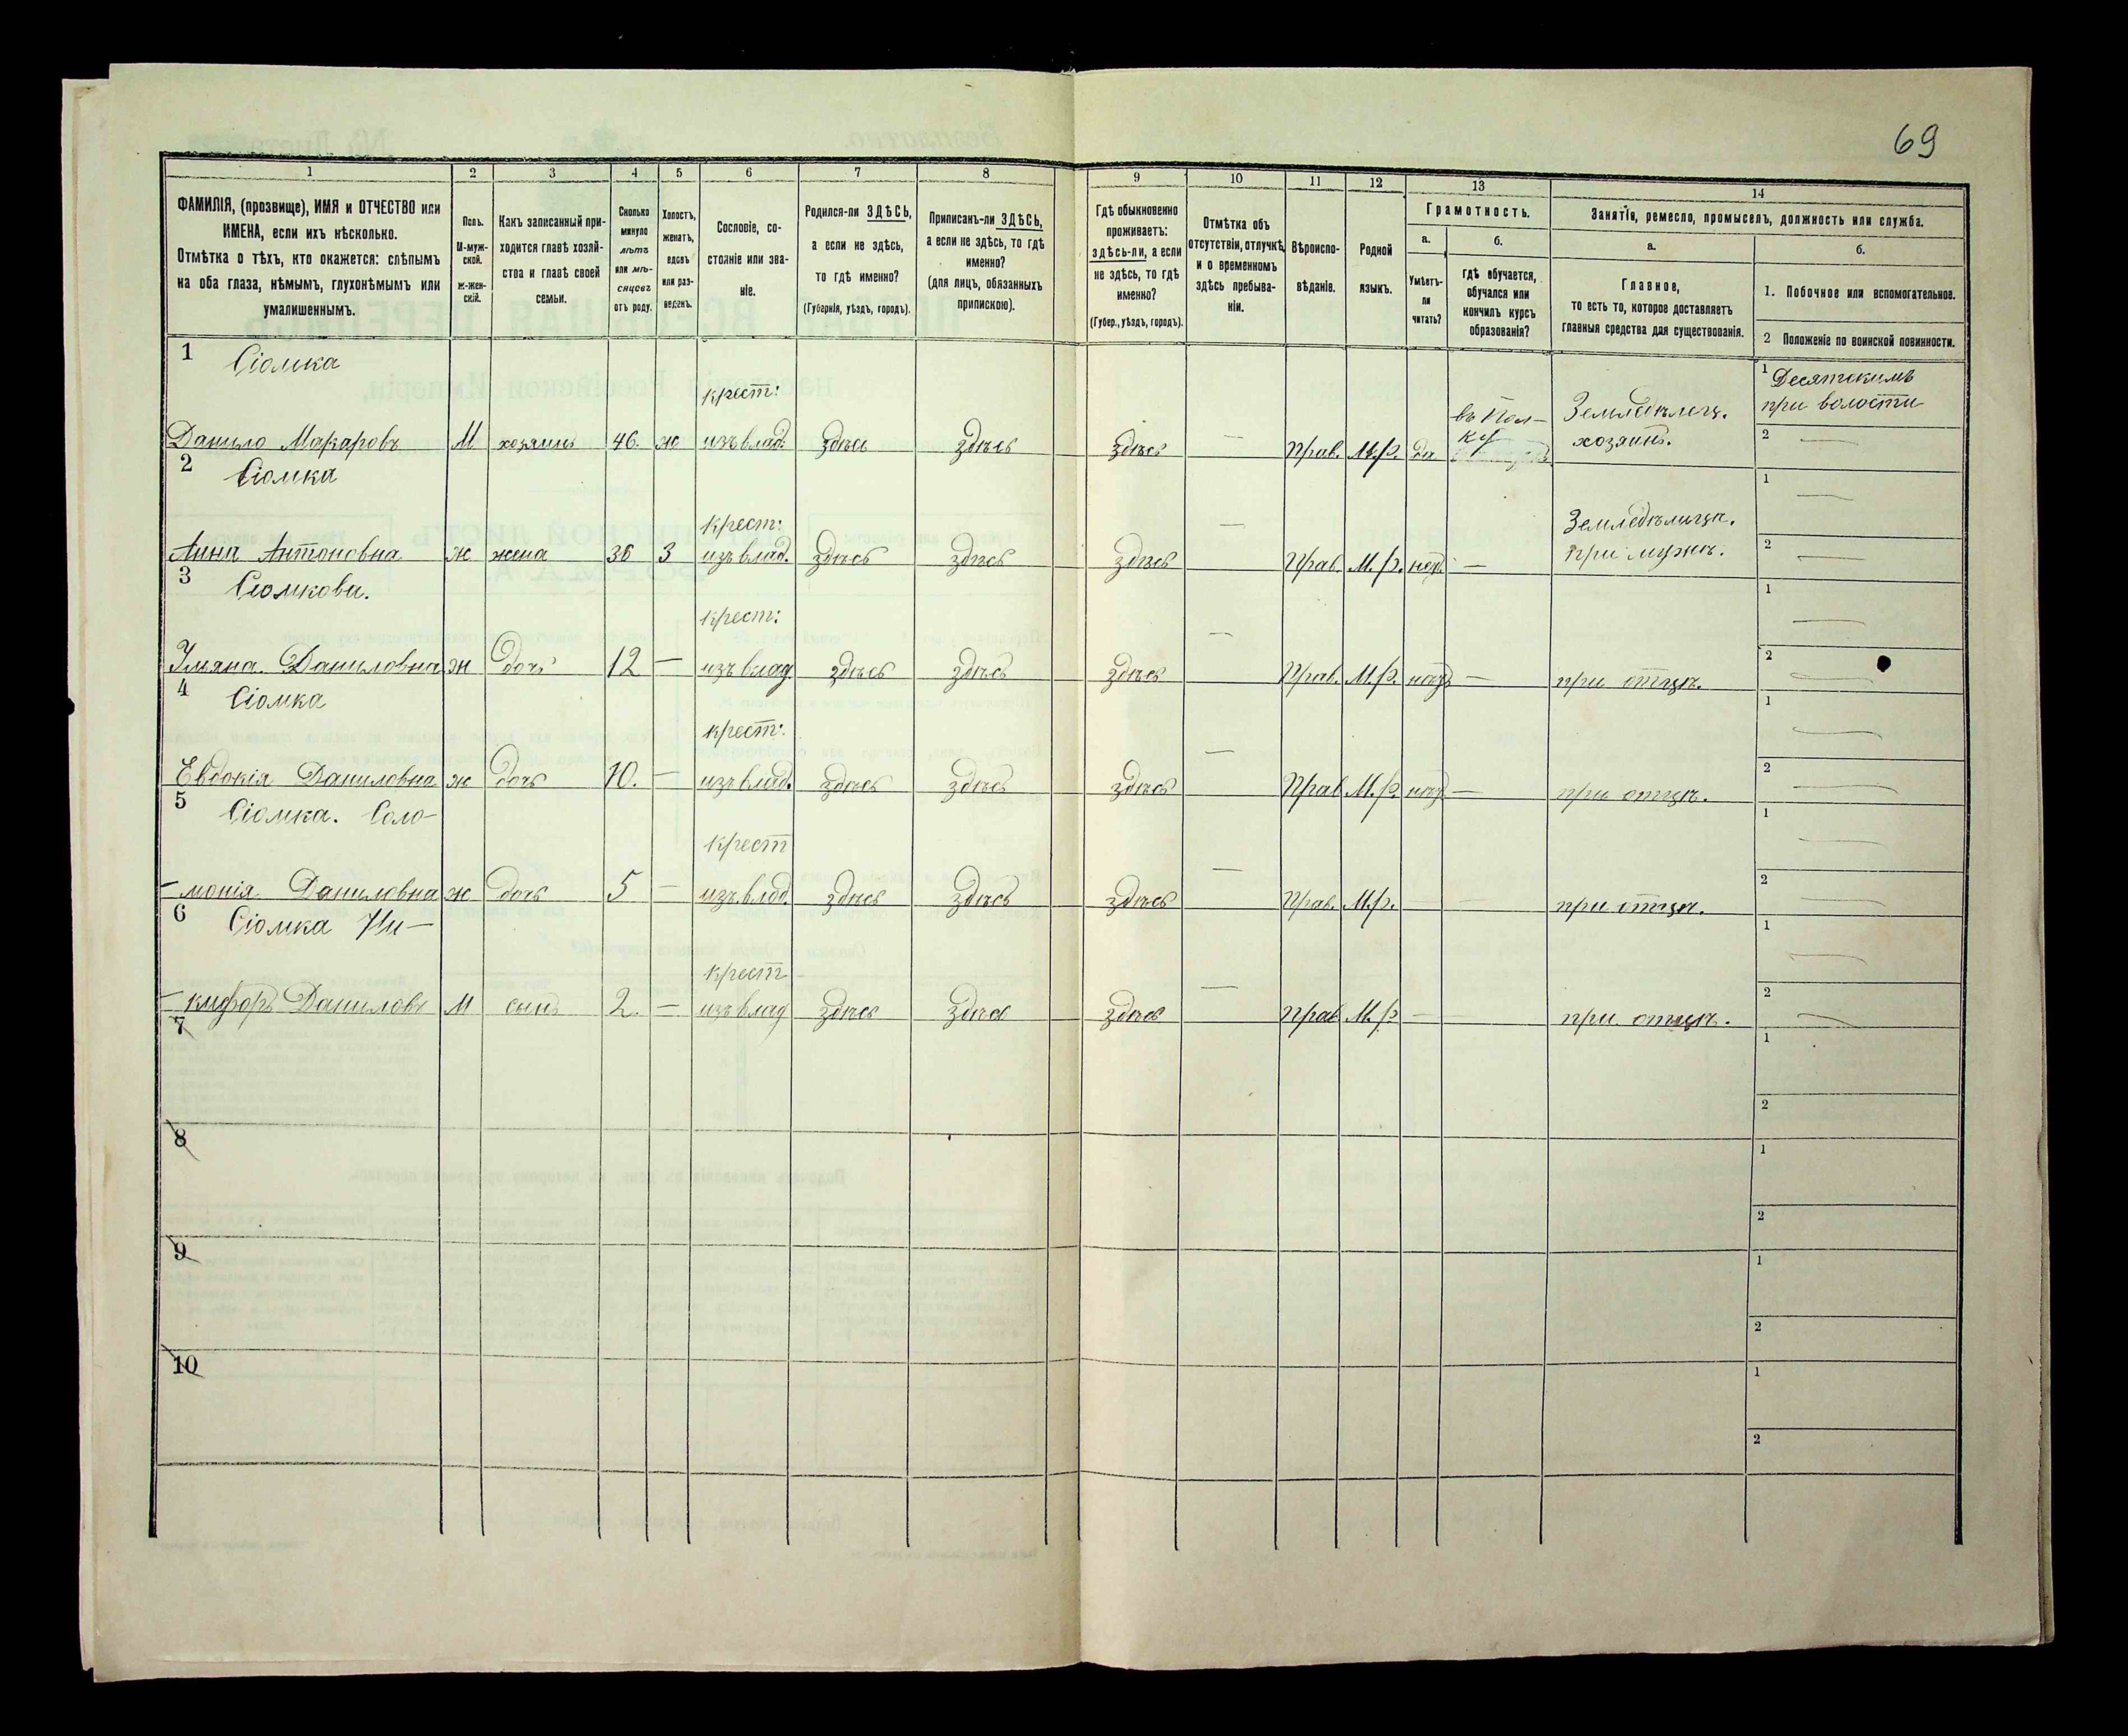 69
1
2
3
4
5
6
7
8
9
10
11
12
13
14
ФАМИЛІЯ, (прозвище), ИМЯ и ОТЧЕСТВО или
ИМЕНА, если ихъ нѣсколько.
Отмѣтка о тѣхъ, кто окажется: слѣпымъ
на оба глаза, нѣмымъ, глухонѣмымъ или
умалишеннымъ.
Полъ.
М-муж-
ской.
ж-жен-
скій.
Какъ записанный при-
ходится главѣ хозяй-
ства и главѣ своей
семьи.
Сколько
минуло
лѣтъ
или мѣ-
сяцевъ
отъ роду.
Холостъ,
женатъ,
вдовъ
или раз-
веденъ.
Сословіе, со-
стояніе или зва-
ніе.
Родился-ли ЗДѢСЬ,
а если не здѣсь,
то гдѣ именно?
(Губернія, уѣздъ, городъ).
Приписанъ-ли ЗДѢСЬ,
а если не здѣсь, то гдѣ
именно?
(для лицъ, обязанныхъ
припискою).
Гдѣ обыкновенно
проживаетъ:
здѣсь-ли, а если
не здѣсь, то гдѣ
именно?
(Губер., уѣздъ, городъ).
Отмѣтка объ
отсутствіи, отлучкѣ
и о временномъ
здѣсь пребыва-
ніи.
Вѣроиспо-
вѣданіе.
Родной
языкъ.
Грамотность.
а.
Умѣетъ-
ли
читать?
б.
гдѣ обучается,
обучался или
кончилъ курсъ
образованія?
Занятія, ремесло, промыселъ, должность или служба.
а.
Главное,
то есть то, которое доставляетъ
главныя средства для существованія.
б.
1. Побочное или вспомогательное.
2 Положеніе по воинской повинности.
1 Сіомка крест: въ Пол- Земледѣлец. 1 Десятскимъ
при волости
Данило Макаровъ М хозяинъ 46. ж изъ влад. здѣсь здѣсь здѣсь — Прав. М.р. да ку хозяинъ. 2 —
2 Сіомка крест: Земледѣлица. 1 —
Анна Антоновна ж жена 36 з изъ влад. здѣсь здѣсь здѣсь — Прав. М.р. нѣт — при мужѣ. 2 —
3 Сіомкова. крест: 1 —
Ульяна Даниловна ж дочь 12 — изъ влад здѣсь здѣсь здѣсь — Прав. М.р. — при отцѣ. 2 —
4 Сіомка крест: 1 —
Евдокія Даниловна ж дочь 10. — изъ влад. здѣсь здѣсь здѣсь — Прав М.р. — при отцѣ. 2 —
5 Сіомка. Соло- крест 1 —
-монія Даниловна ж дочь 5 — изъ влад. здѣсь здѣсь здѣсь — Прав. М.р. при отцѣ. 2 —
6 Сіомка Ни- крест 1 —
-кифоръ Даниловъ М сынъ 2. — изъ влад здѣсь здѣсь здѣсь — Прав М.р — при отцѣ. 2 —
7 1
2
8 1
2
9 1
2
10 1
2